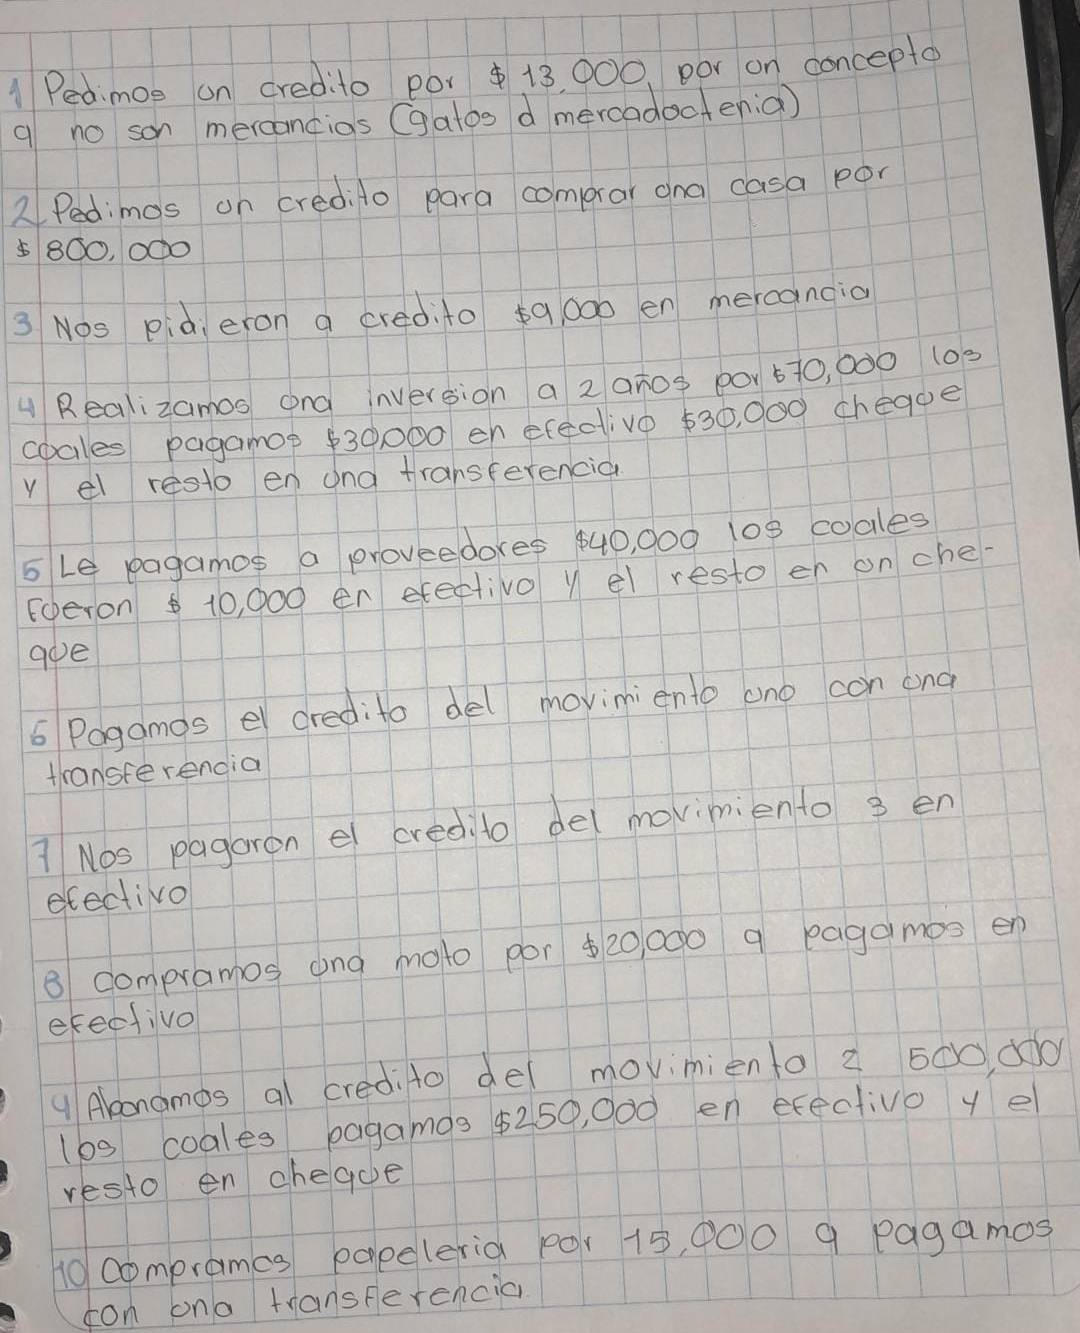 1 Pedimos un credito por $ 13,000 por un concepto
q no son mercancias (gatos d mercadoctenia)
2 Pedimos un credito para comprar una casa por
$ 800,000
3 Nos pidieron a credito $9,000 en mercancia
4 Realizamos una inversion a 2 años por $70,000 los
cuales pagamos $30,000 en efectivo $30,000 cheque
y el resto en una transferencia
5 Le pagamos a proveedores $40,000 los cuales
fueron $ 10,000 en efectivo y el resto en un che-
que
6 Pagamos el credito del movimiento uno con una
transferencia
7 Nos pagaron el credito del movimiento 3 en
efectivo
8 compramos una moto por $20,000 q pagamos en
efectivo
9 Abonamos al credito del movimiento 2 500,000
los cuales pagamos $250,000 en efectivo y el
resto en cheque
10 compramos papeleria por 15,000 q pagamos
con una transferencia